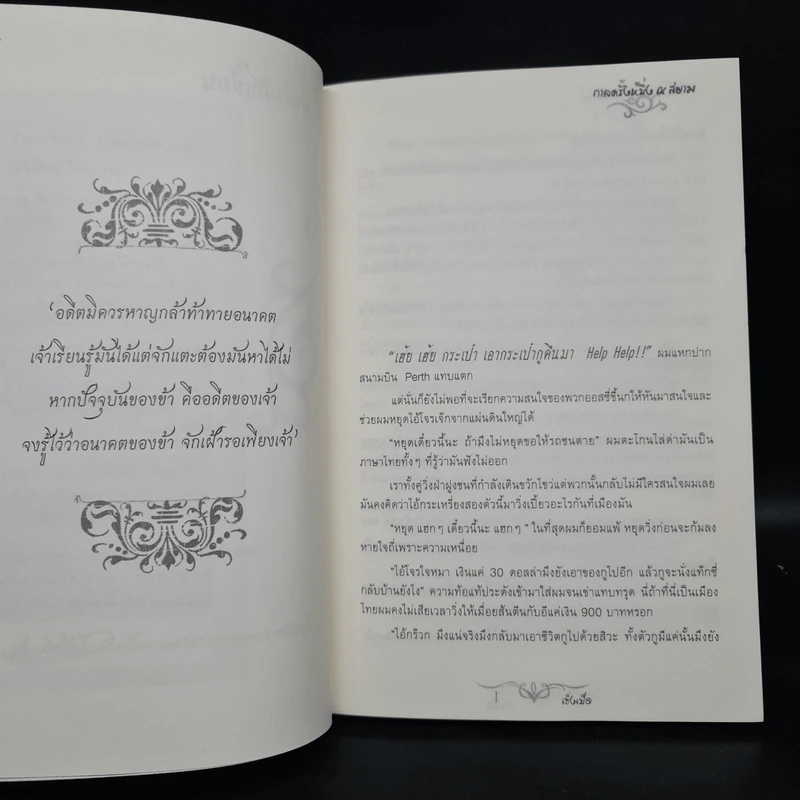 'อดีตมิควรหาญกล้าท้าทายอนาคต
เจ้าเรียนรู้มันได้แต่จักแตะต้องมันหาได้ไม่
หากปัจจุบันของข้า คืออดีตของเจ้า
จงรู้ไว้ว่าอนาคตของข้า จักเฝ้ารอเพียงเจ้า'
กาลครั้งหนึ่ง ณ สยาม
"เฮ้ย เฮ้ย กระเป๋า เอากระเป๋ากูคืนมา Help Help!!" ผมแหกปาก
สนามบิน Perth แทบแตก
แต่นั่นก็ยังไม่พอที่จะเรียกความสนใจของพวกออสซี่ขี้นกให้หันมาสนใจและ
ช่วยผมหยุดไอ้โจรเจ๊กจากแผ่นดินใหญ่ได้
"หยุดเดี๋ยวนี้นะ ถ้ามึงไม่หยุดขอให้รถชนตาย" ผมตะโกนไล่ด่ามันเป็น
ภาษาไทยทั้งๆ ที่รู้ว่ามันฟังไม่ออก
เราทั้งคู่วิ่งฝ่าฝูงชนที่กำลังเดินขวักไขว่แต่พวกนั้นกลับไม่มีใครสนใจผมเลย
มันคงคิดว่าไอ้กระเหรี่ยงสองตัวนี้มาวิ่งเปี้ยวอะไรกันที่เมืองมัน
"หยุด แฮกๆ เดี๋ยวนี้นะ แฮกๆ" ในที่สุดผมก็ยอมแพ้ หยุดวิ่งก่อนจะก้มลง
หายใจถี่เพราะความเหนื่อย
"ไอ้โจรใจหมา เงินแค่ 30 ดอลล่ามึงยังเอาของกูไปอีก แล้วกูจะนั่งแท็กซี่
กลับบ้านยังไง" ความท้อแท้ประดังเข้ามาใส่ผมจนเข่าแทบทรุด นี่ถ้าที่นี่เป็นเมือง
ไทยผมคงไม่เสียเวลาวิ่งให้เมื่อยส้นตีนกับอีแค่เงิน 900 บาทหรอก
"ไอ้กร๊วก มึงแน่จริงมึงกลับมาเอาชีวิตกูไปด้วยสิวะ ทั้งตัวกูมีแค่นั้นมึงยัง
1
เซิงเป้อ